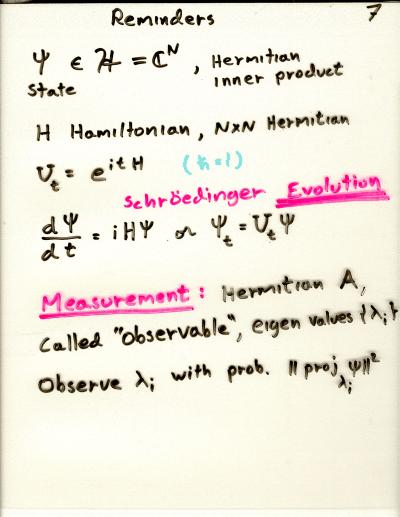 Reminders 7
Ψ ∈ ℋ = ℂᴺ , Hermitian
state inner product
H Hamiltonian , N×N Hermitian
U_t = e^{itH} (ℏ=1)
Schröedinger Evolution
dΨ/dt = iHΨ or Ψ_t = U_t Ψ
Measurement : Hermitian A,
Called "observable", eigen values {λ_i}
Observe λ_i with prob. ‖proj_{λ_i} Ψ‖²